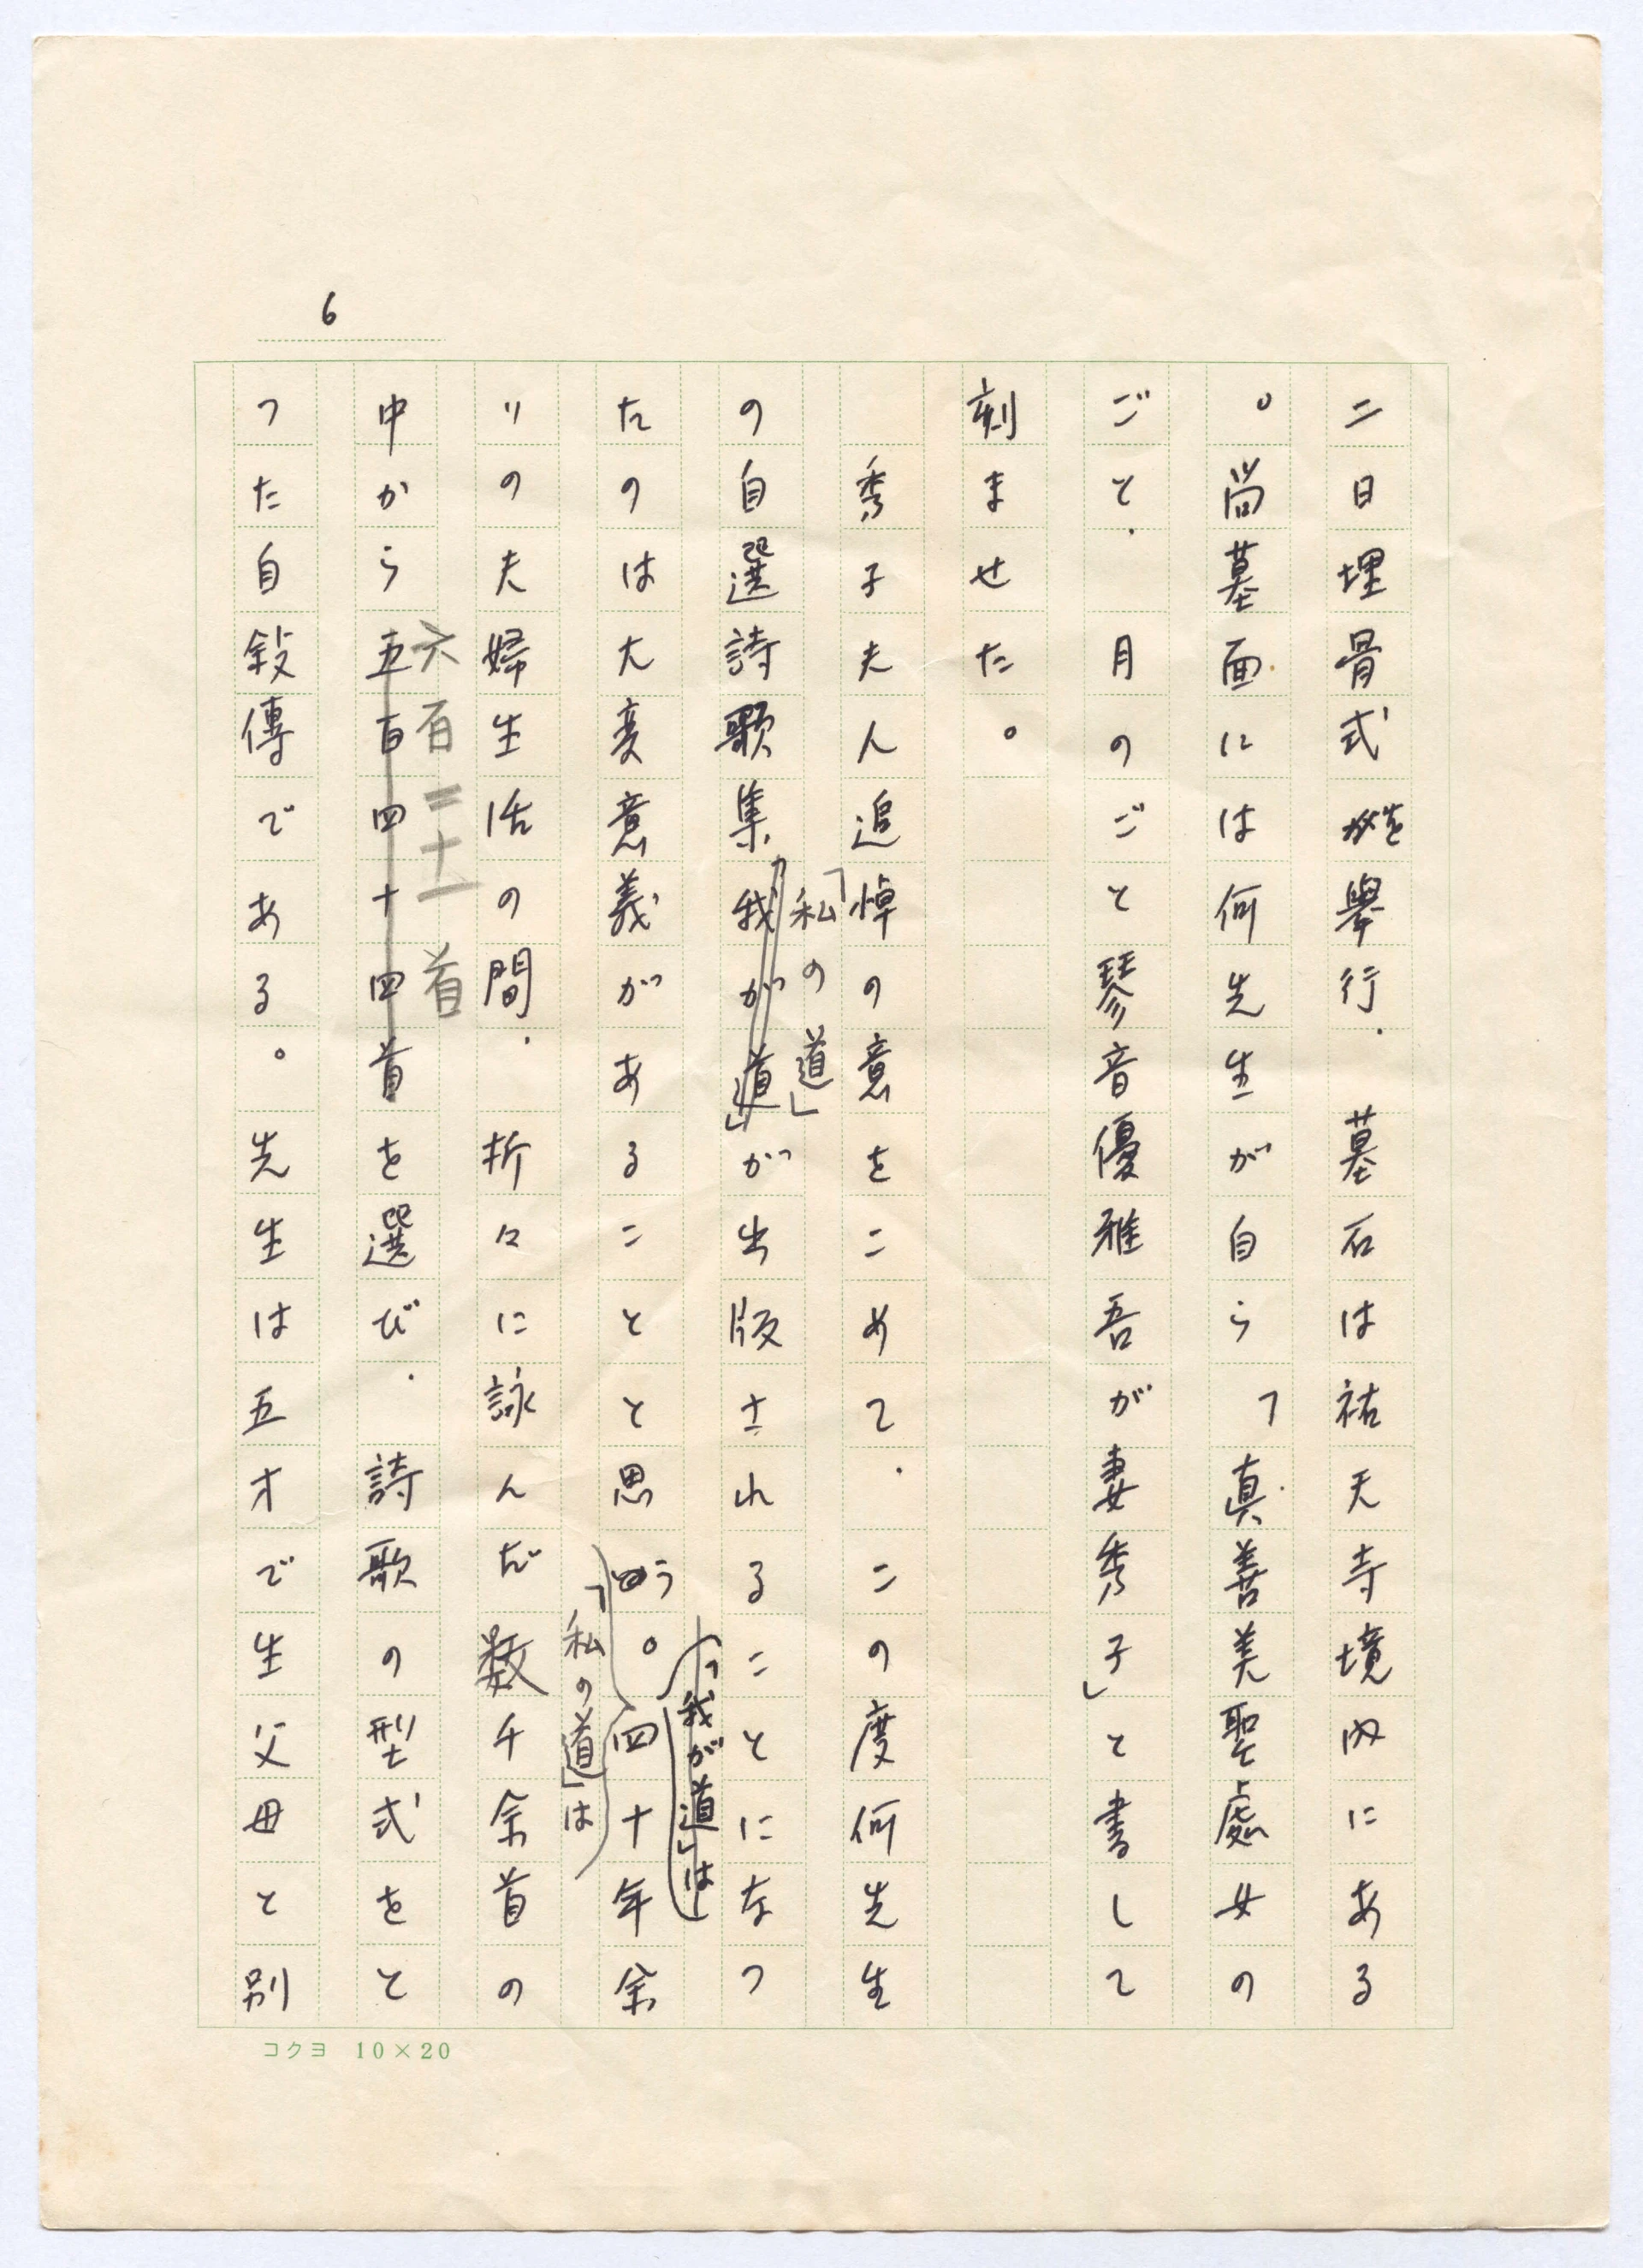 6
二日埋骨式を舉行、墓石は祐天寺境内にある
。尚墓面には何先生が自ら「真善美聖處女の
ごと、月のごと琴音優雅吾が妻秀子」と書して
刻ませた。
秀子夫人追悼の意をこめて、この度何先生
「私の道」
の自選詩歌集「我が道」が出版されることになつ
「我が道」は
たのは大変意義があることと思う。四十年余
「私の道」は
りの夫婦生活の間、折々に詠んだ数千余首の
六百二十一首
中から五百四十四首を選び、詩歌の型式をと
つた自敍傳である。先生は五才で生父母と別
コクヨ 10×20